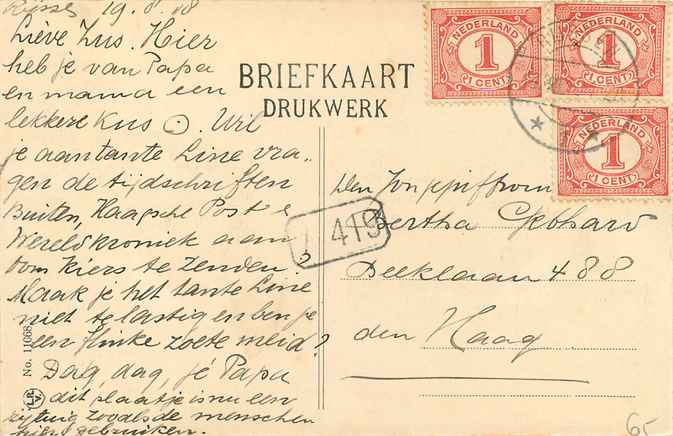 Rijssen 19.8.18
Lieve Zus. Hier
heb je van Papa
en mama een
lekkere Kus . Wil
je aan tante Line vra„
gen de tijdschriften
Buiten, Haagsche Post e
Wereldkroniek aan
oom Kiers te zenden?
Maak je het tante Line
niet te lastig en ben je
een flinke zoete meid?
Dag, dag, je Papa
dit plaatje is nu een
rijtuig zooals de menschen
hier gebruiken.
BRIEFKAART
DRUKWERK
NEDERLAND
1
1 CENT
NEDERLAND
1
1 CENT
NEDERLAND
1
1 CENT
419
Den Jongejuffrouw
Bertha Gebhard
Beeklaan 488
den Haag
No. 11068
65